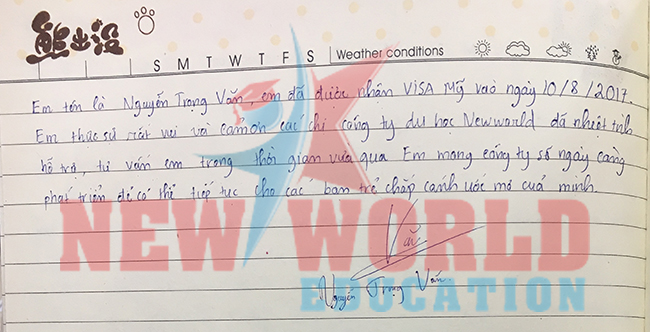 熊出没
S M T W T F S Weather conditions
Em tên là Nguyễn Trọng Văn, em đã được nhận VISA Mỹ vào ngày 10/8/2017.
Em thực sự rất vui và cảm ơn các chị công ty du học Newworld đã nhiệt tình
hỗ trợ, tư vấn em trong thời gian vừa qua Em mong công ty sẽ ngày càng
phát triển để có thể tiếp tục cho các bạn trẻ chắp cánh ước mơ của mình.
Văn
Nguyễn Trọng Văn
NEW WORLD
EDUCATION